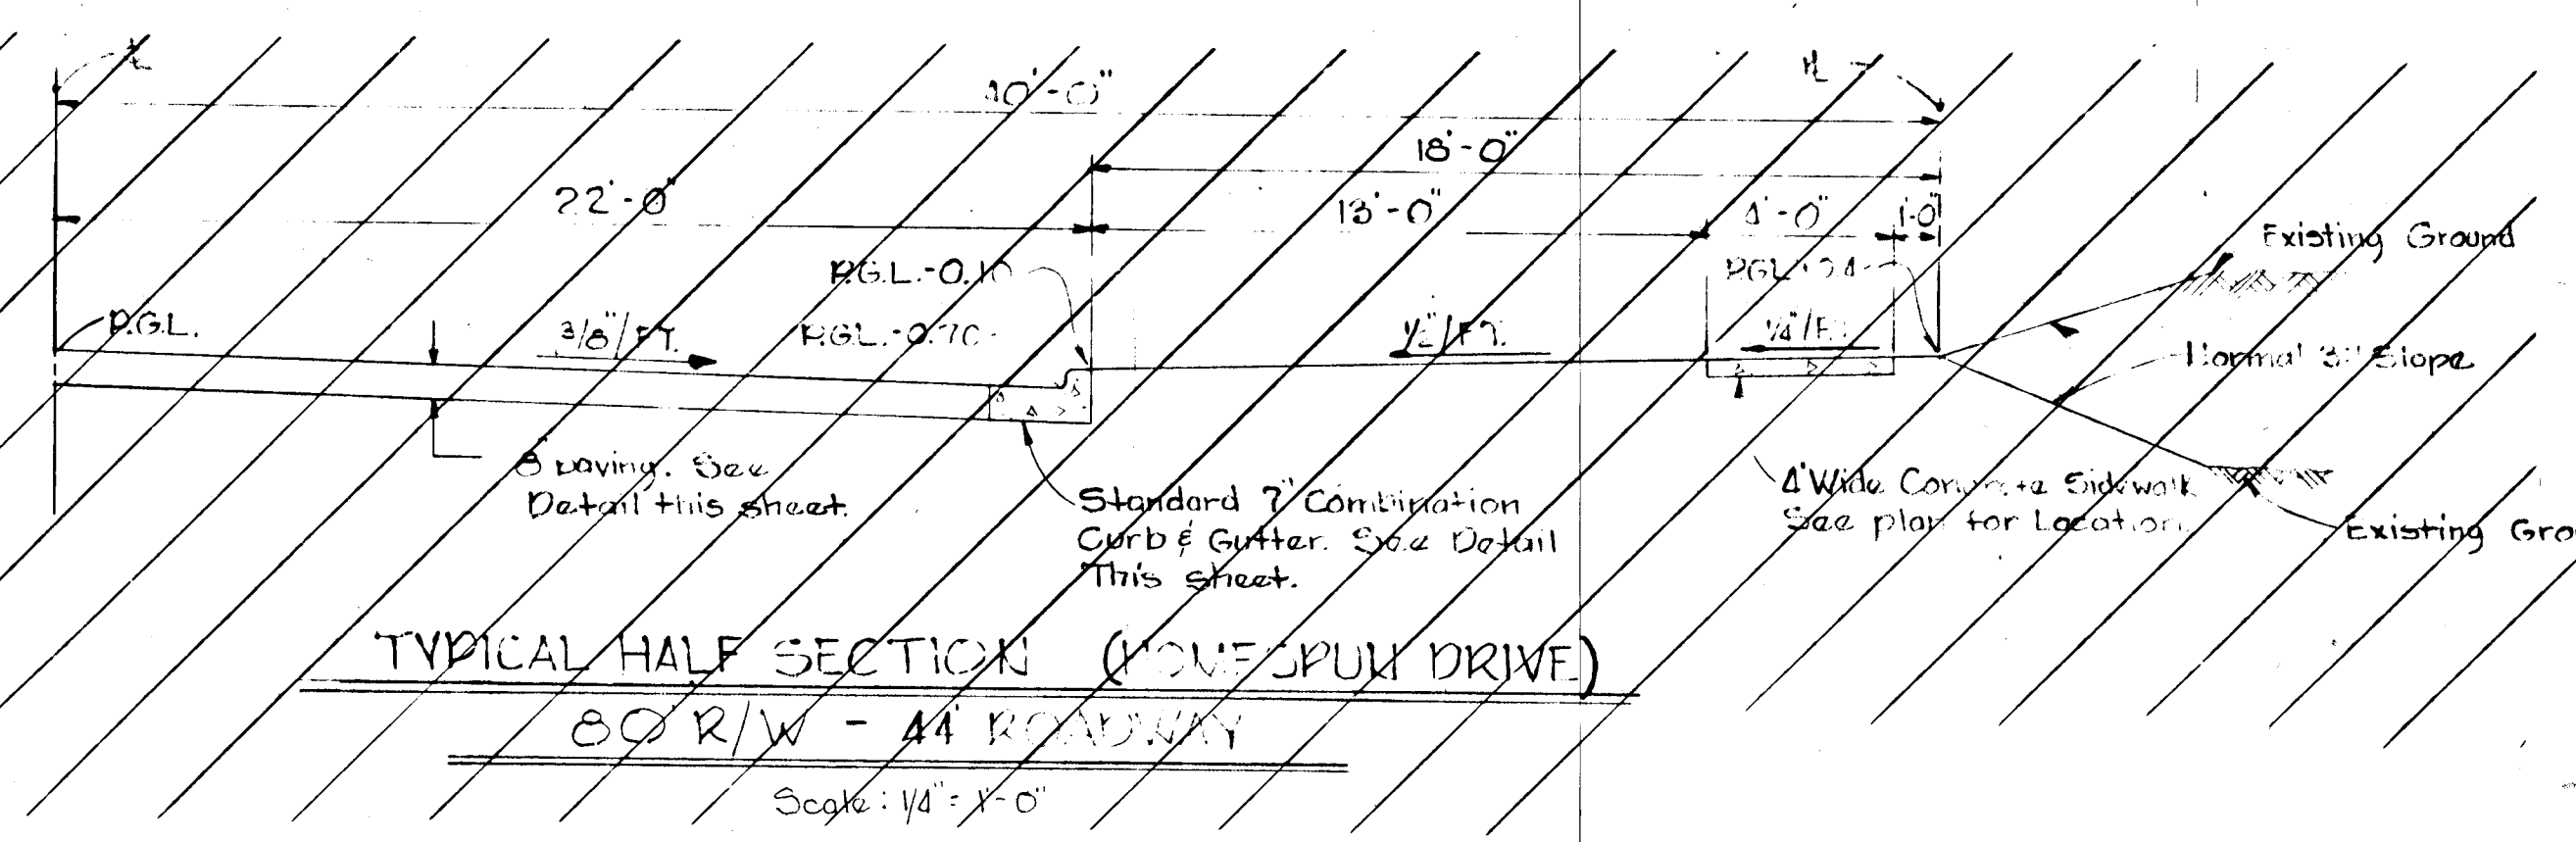 40'-0"
18'-0"
22'-0"
13'-0"
4'-0"
1'-0"
Existing Ground
P.G.L.-0.10
P.G.L.
3/8"/FT.
P.G.L.-0.70
1/2"/FT.
1/4"/FT.
Normal 3:1 Slope
8" paving. See
Detail this sheet.
Standard 7" Combination
Curb & Gutter. See Detail
This sheet.
4' Wide Concrete Sidewalk
See plan for Location.
Existing Gro
TYPICAL HALF SECTION (HOMESPUN DRIVE)
80' R/W - 44' ROADWAY
Scale: 1/4" = 1'-0"